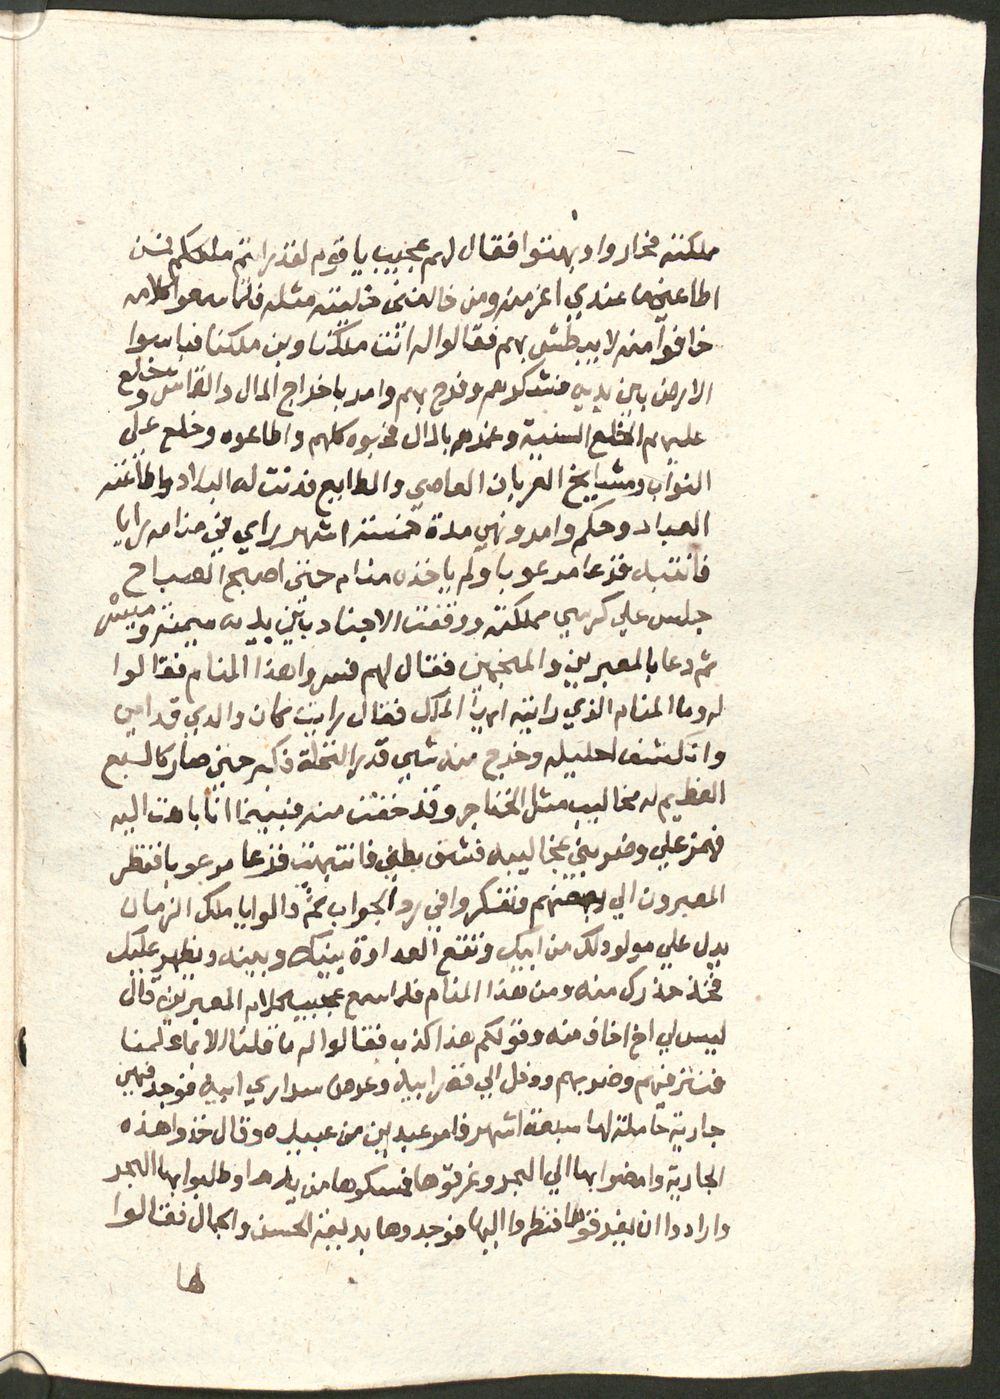 ملكته فحاروا وبهتوا فقال لهم عجيب يا قوم لقد رايتم ملككم فمن
اطاعني ما عندي اعز منه ومن خالفني خليته مثله فلما سمعوا كلامه
خافوا منه لا يبطش بهم فقالوا له انت ملكنا وبن ملكنا فباسوا
الارض بين يديه فشكرهم وفرح بهم وامر باخراج المال والقماش وخلع
عليهم الخلع السنية وغمرهم بالمال فحبوه كلهم واطاعوه وخلع علي
النواب ومشايخ العربان العاصي والطايع فدنت له البلاد واطاعته
العباد وحكم وامر ونهي مدة خمسة اشهر راي في منامه رايا
فانتبه فزعا مرعوبا ولم ياخذه منام حتي اصبح الصباح
جلس علي كرسي مملكته ووقفت الاجناد بين يديه ميمنة وميسرة
ثم دعا بالمعبرين والمنجمين فقال لهم فسروا هذا المنام فقالوا
له وما المنام الذي رايته ايها الملك فقال رايت كان والدي قدامي
وانكشف احليله وخرج منه شي قدر النحلة فكبر حتي صار كالسبع
العظيم له مخاليب مثل الخناجر وقد خفت منه فبينما انا باهت اليه
فهمز علي وضربني بمخاليبه فشق بطني فانتبهت فزعا مرعوبا فنظر
المعبرون الي بعضهم وتفكروا في رد الجواب ثم قالوا يا ملك الزمان
يدل علي مولود لك من ابيك وتقع العداوة بينك وبينه ويظهر عليك
فخذ حذرك منه ومن هذا المنام فلما سمع عجيب كلام المعبرين قال
ليس لي اخ اخاف منه وقولكم هذا كذب فقالوا له ما قلنا الا بما علمنا
فنفر فيهم وضربهم ودخل الي قصر ابيه وعرض سراري ابيه فوجد فيهن
جارية حاملة لها سبعة اشهر فامر عبدين من عبيده وقال خذوا هذه
الجارية وامضوا بها الي البحر وغرقوها فمسكوها من يدها وطلبوا بها البحر
وارادوا ان يغرقوها فنظروا اليها فوجدوها بديعة الحسن والجمال فقالوا
لها